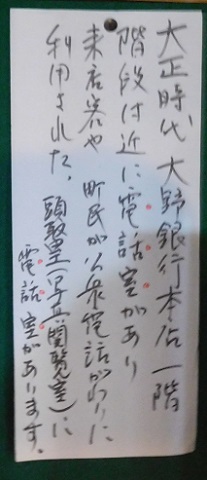 大正時代 大野銀行本店一階
階段付近に電話室があり
来店客や 町民が公衆電話がわりに
利用された。頭取室(写真閲覧室)に
電話室があります。